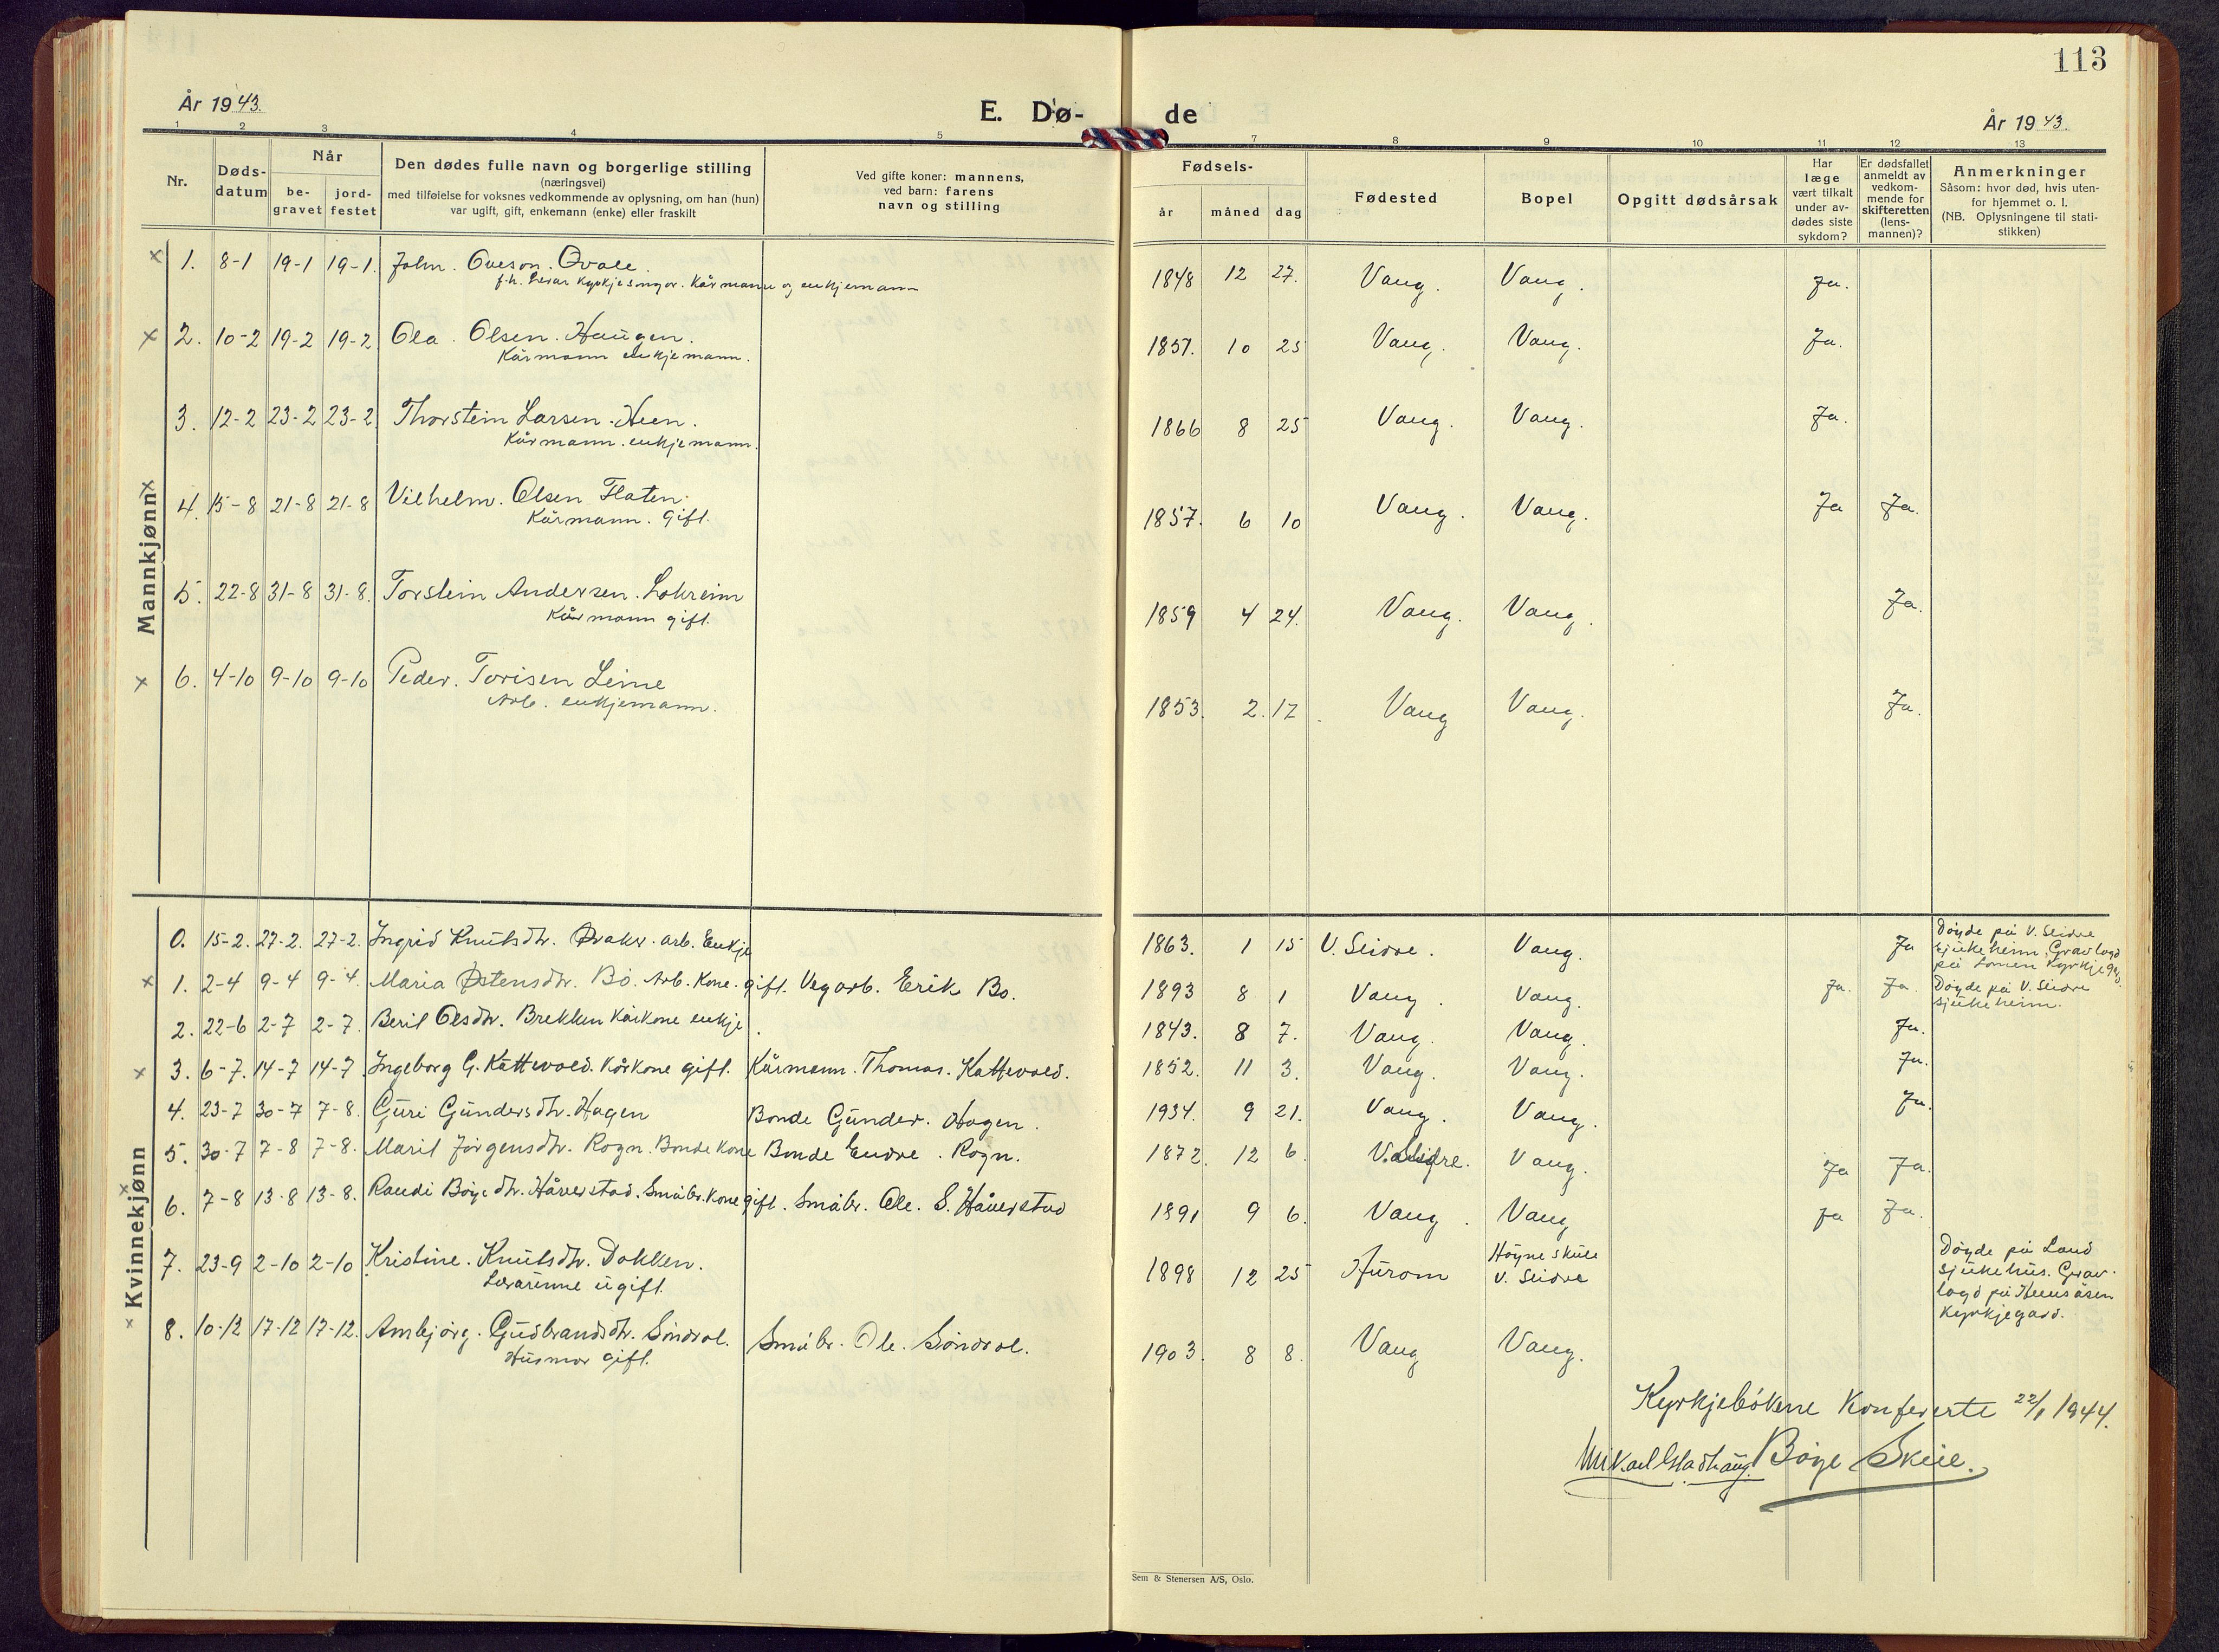 113
År 1943.
E. Dø-
de
År 1943.
1 2 3 4 5 7 8 9 10 11 12 13
Nr.
Døds-
datum
Når
be-
gravet
jord-
festet
Den dødes fulle navn og borgerlige stilling
(næringsvei)
med tilføielse for voksnes vedkommende av oplysning, om han (hun)
var ugift, gift, enkemann (enke) eller fraskilt
Ved gifte koner: mannens,
ved barn: farens
navn og stilling
Fødsels-
år måned dag
Fødested
Bopel
Opgitt dødsårsak
Har
læge
vært tilkalt
under av-
dødes siste
sykdom?
Er dødsfallet
anmeldt av
vedkom-
mende for
skifteretten
(lens-
mannen)?
Anmerkninger
Såsom: hvor død, hvis uten-
for hjemmet o. l.
(NB. Oplysningene til stati-
stikken)
Mannkjønn
x 1. 8-1 19-1 19-1. John. Oveson. Qvale. 1848 12 27. Vang. Vang. Ja.
f.h. Lerar Kyrkjesongor. Kårmann og enkjemann
x 2. 10-2 19-2 19-2 Ola. Olsen. Haugen. 1857. 10 25 Vang. Vang. Ja.
Kårmann enkjemann.
3. 12-2 23-2 23-2 Thorstein Larsen. Heen. 1866 8 25 Vang. Vang. Ja.
Kårmann. enkjemann.
x 4. 15-8 21-8 21-8 Vilhelm. Olsen Flaten. 1857. 6 10 Vang. Vang. Ja Ja.
Kårmann. gift.
5. 22-8 31-8 31-8. Torstein Andersen. Lokreim 1859 4 24. Vang. Vang. Ja.
Kårmann gift.
x 6. 4-10 9-10 9-10 Peder. Torisen Leine 1853. 2. 17 Vang Vang. Ja.
Arb. enkjemann.
Kvinnekjønn
0. 15-2. 27-2. 27-2. Ingrid Knutsdtr. Øvakr. arb. Enkje 1863. 1 15 V. Slidre. Vang. Ja Døyde på V. Slidre
sjukeheim, Gravlagd
på Lomen Kyrkjegard
x 1. 2-4 9-4 9-4. Maria Østensdtr. Bø. Arb. Kone. gift. Vegarb. Erik Bø. 1893 8 1 Vang. Vang. Ja. Ja. Døyde på V. Slidre
sjukeheim.
2. 22-6 2-7 2-7. Beril Olsdtr. Brekken Kårkone enkje. 1843. 8 7. Vang. Vang. Ja.
x 3. 6-7. 14-7 14-7 Ingeborg G. Kattevold. Kårkone gift. Kårmann. Thomas. Kattevold. 1852. 11 3. Vang. Vang. Ja.
4. 23-7 30-7 7-8. Guri Gundersdtr. Hagen Bonde Gunder. Hagen. 1934. 9 21. Vang. Vang. Ja.
5. 30-7 7-8 7-8. Marit Jørgensdtr. Rogn. Bonde Kone Bonde Endre. Rogn. 1872. 12 6 V. Slidre. Vang. Ja Ja.
x 6. 7-8 13-8 13-8. Randi Bøyedtr. Håverstad. Småbr. Kone gift. Småbr. Ole. S. Håverstad 1891 9 6. Vang. Vang Ja Ja.
7. 23-9 2-10 2-10 Kristine. Knutsdtr. Dokken. 1898 12 25 Hurom Høyne skule
V. Slidre Døyde på Land
sjukehus. Grav-
lagd på Hensåsen
Kyrkjegard.
Lærarinne ugift.
x 8. 10-12 17-12 17-12. Ambjørg. Gudbrandsdtr. Søndrol. Småbr. Ole. Søndrol. 1903. 8 8. Vang Vang.
Husmor gift.
Kyrkjebøkene Konfererte 22/1 1944.
Mikael Stadhaug. Bøye Skeie.
Sem & Stenersen A/S, Oslo.